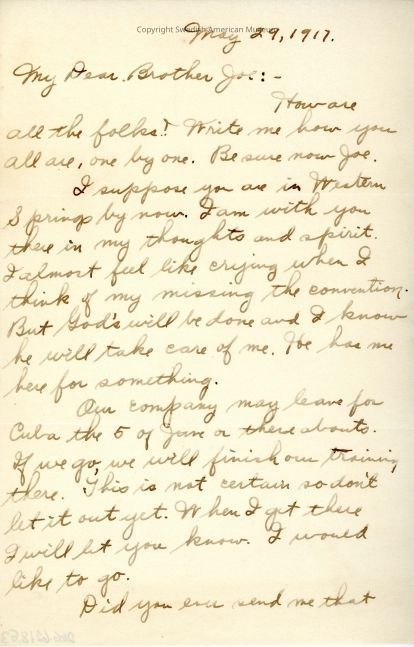 Copyright Swedish American Museum
May 29, 1917.
My Dear Brother Joe:-
How are
all the folks? Write me how you
all are, one by one. Be sure now Joe.
I suppose you are in Western
Springs by now. I am with you
there in my thoughts and spirit.
I almost feel like crying when I
think of my missing the convention.
But God's will be done and I know
he will take care of me. He has me
here for something.
Our company may leave for
Cuba the 5 of June or there abouts.
If we go, we will finish our training
there. This is not certain so don't
let it out yet. When I get there
I will let you know. I would
like to go.
Did you ever send me that